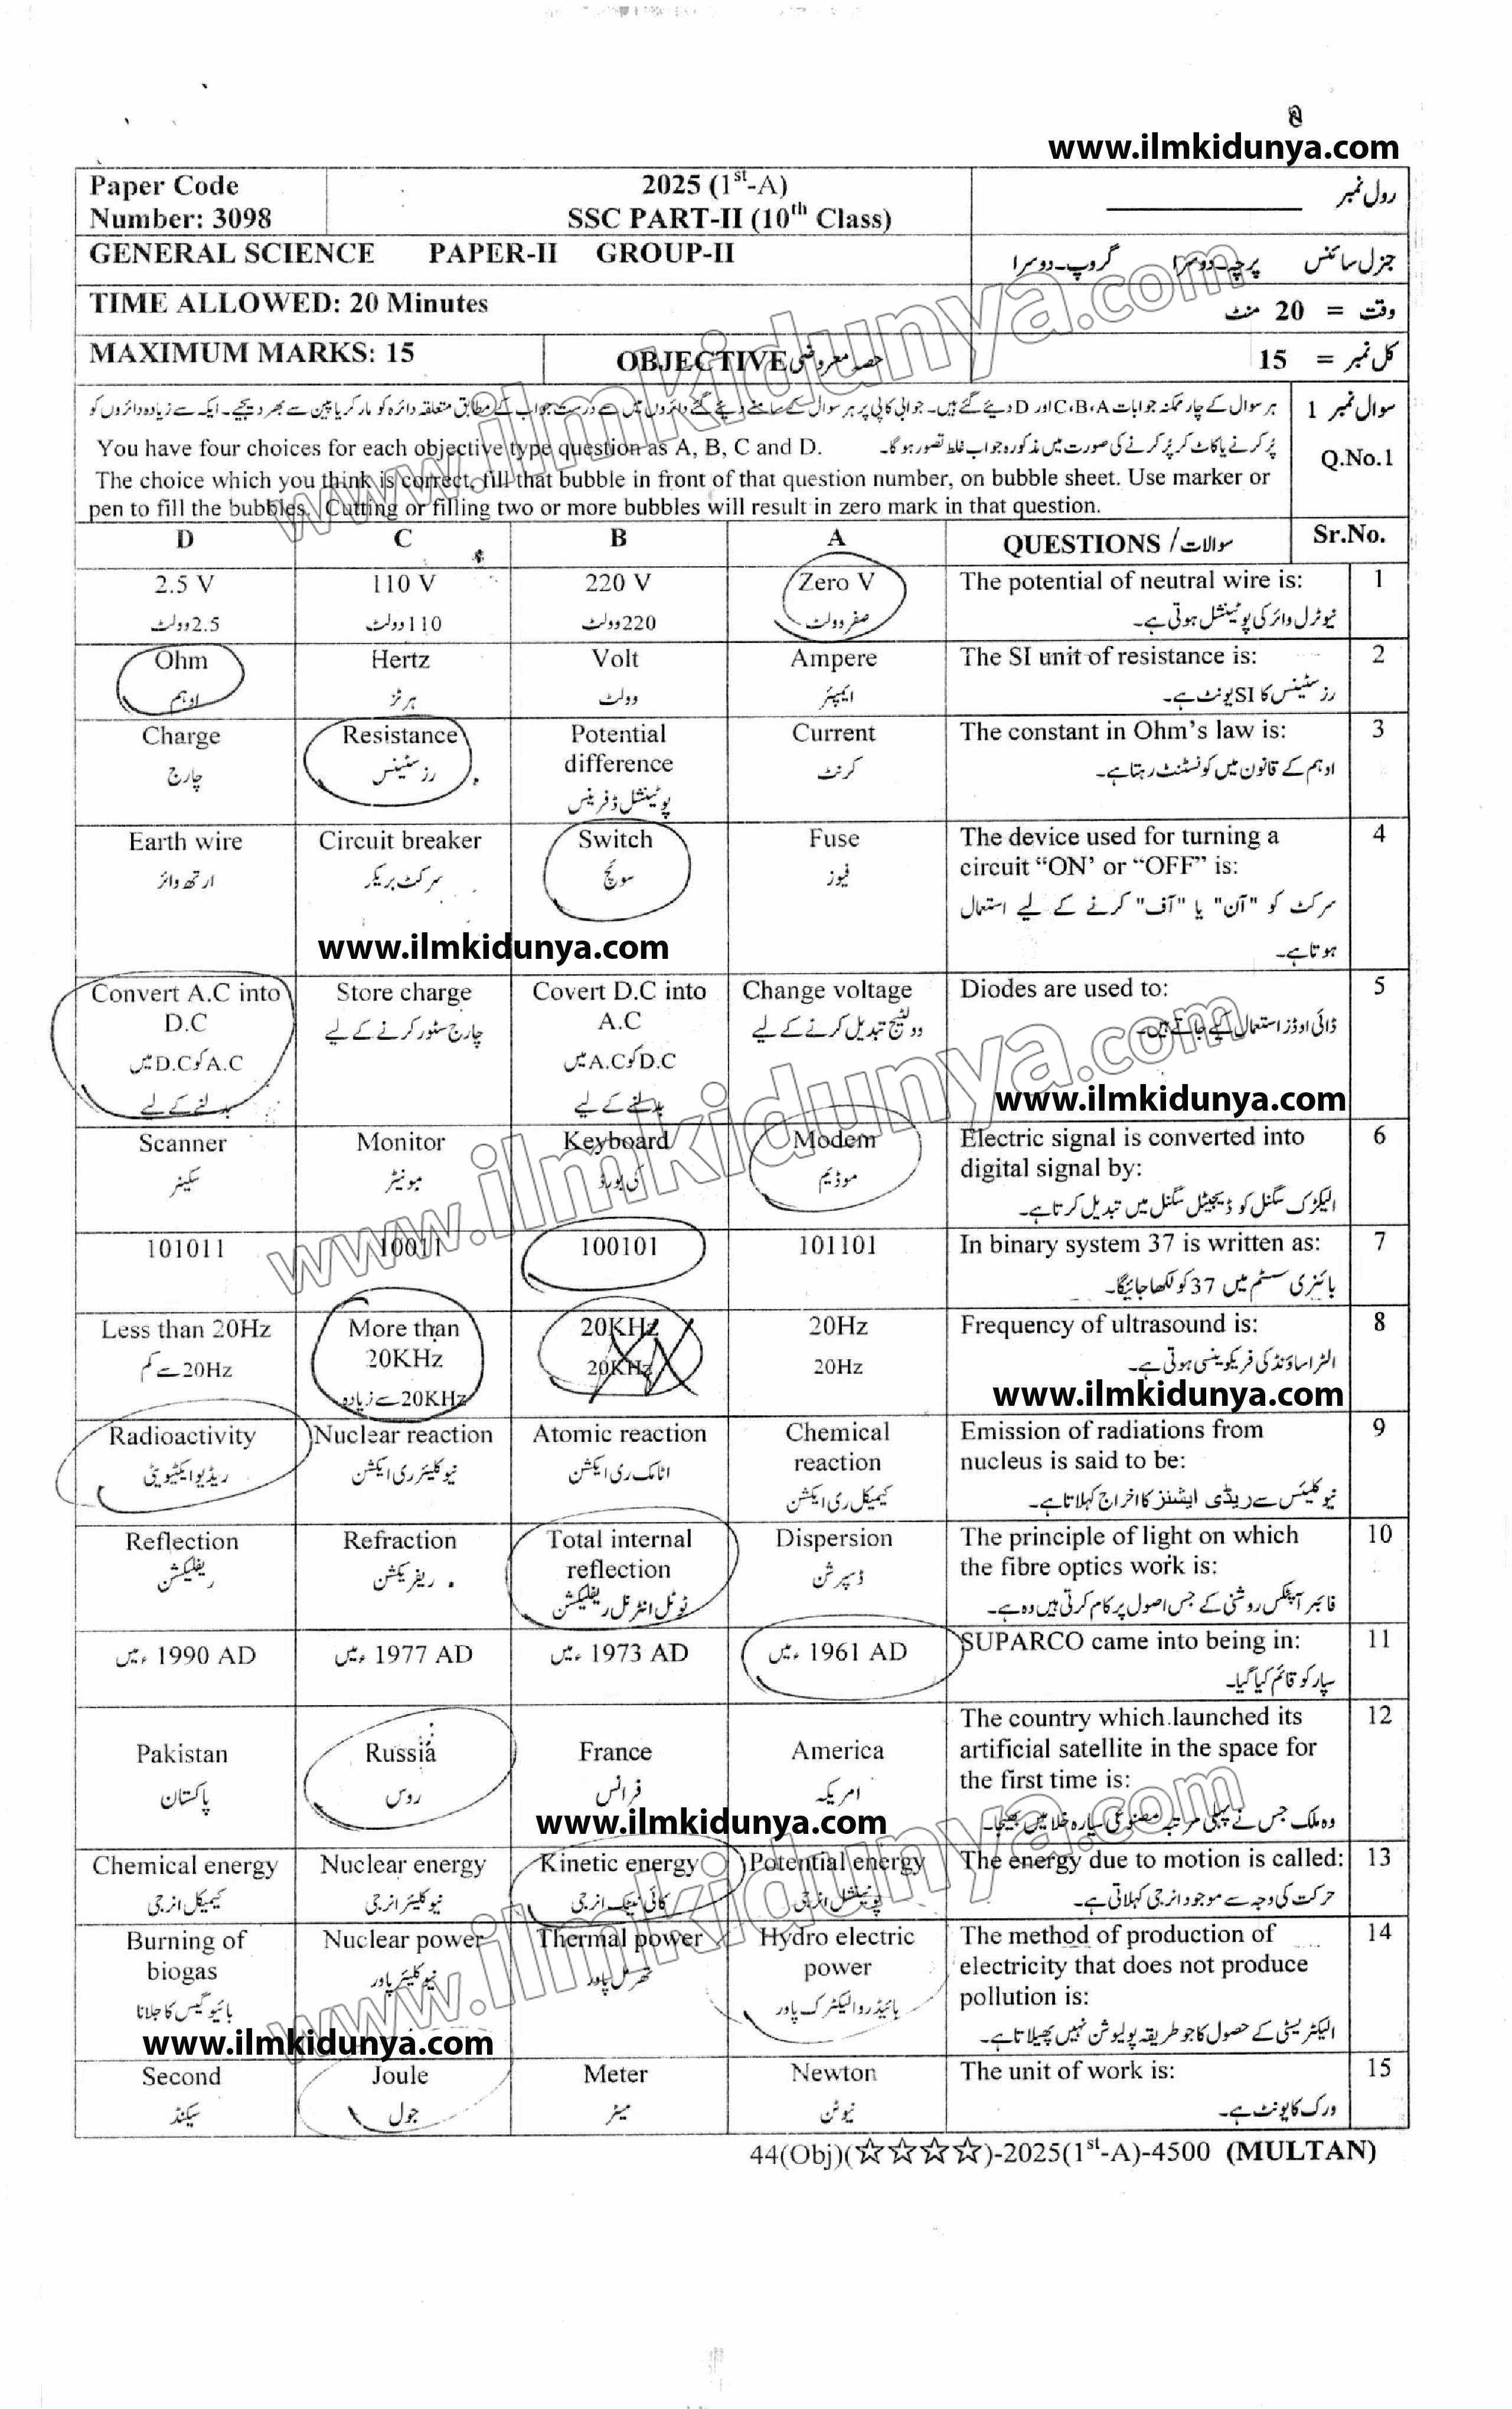 www.ilmkidunya.com
Paper Code
Number: 3098
2025 (1st-A)
SSC PART-II (10th Class)
رول نمبر
GENERAL SCIENCE PAPER-II GROUP-II
جنرل سائنس پرچہ-دوسرا گروپ-دوسرا
TIME ALLOWED: 20 Minutes
وقت = 20 منٹ
MAXIMUM MARKS: 15
OBJECTIVE حصہ معروضی
کل نمبر = 15
سوال نمبر 1
Q.No.1
ہر سوال کے چار ممکنہ جوابات C،B،A اور D دیئے گئے ہیں۔ جوابی کاپی پر ہر سوال کے سامنے دیئے گئے دائروں میں سے درست جواب کے مطابق متعلقہ دائرہ کو مارکر یا پین سے بھر دیجیے۔ ایک سے زیادہ دائروں کو
پُر کرنے یا کاٹ کر پُر کرنے کی صورت میں مذکورہ جواب غلط تصور ہو گا۔
You have four choices for each objective type question as A, B, C and D.
The choice which you think is correct, fill that bubble in front of that question number, on bubble sheet. Use marker or
pen to fill the bubbles. Cutting or filling two or more bubbles will result in zero mark in that question.
D C B A QUESTIONS / سوالات Sr.No.
2.5 V 110 V 220 V Zero V The potential of neutral wire is: 1
2.5وولٹ 110وولٹ 220وولٹ صفر وولٹ نیوٹرل وائر کی پوٹینشل ہوتی ہے۔
Ohm Hertz Volt Ampere The SI unit of resistance is: 2
اوہم ہرٹز وولٹ ایمپیئر رزسٹینس کا SI یونٹ ہے۔
Charge Resistance Potential difference Current The constant in Ohm's law is: 3
چارج رزسٹینس پوٹینشل ڈفرینس کرنٹ اوہم کے قانون میں کونسٹنٹ رہتا ہے۔
Earth wire Circuit breaker Switch Fuse The device used for turning a
circuit "ON' or "OFF" is: 4
ارتھ وائر سرکٹ بریکر سوئچ فیوز سرکٹ کو "آن" یا "آف" کرنے کے لیے استعمال
ہوتا ہے۔
www.ilmkidunya.com
Convert A.C into D.C Store charge Covert D.C into A.C Change voltage Diodes are used to: 5
A.C کو D.C میں بدلنے کے لیے چارج سٹور کرنے کے لیے D.C کو A.C میں بدلنے کے لیے وولٹیج تبدیل کرنے کے لیے ڈائی اوڈز استعمال کیے جاتے ہیں۔
www.ilmkidunya.com
Scanner Monitor Keyboard Modem Electric signal is converted into
digital signal by: 6
سکینر مونیٹر کی بورڈ موڈیم الیکٹرک سگنل کو ڈیجیٹل سگنل میں تبدیل کرتا ہے۔
101011 10011 100101 101101 In binary system 37 is written as: 7
بائنری سسٹم میں 37 کو لکھا جائیگا۔
Less than 20Hz More than 20KHz 20KHz 20Hz Frequency of ultrasound is: 8
20Hz سے کم 20KHz سے زیادہ 20KHz 20Hz الٹراساؤنڈ کی فریکوئنسی ہوتی ہے۔
www.ilmkidunya.com
Radioactivity Nuclear reaction Atomic reaction Chemical reaction Emission of radiations from
nucleus is said to be: 9
ریڈیو ایکٹیویٹی نیوکلیئر ری ایکشن اٹامک ری ایکشن کیمیکل ری ایکشن نیوکلیئس سے ریڈی ایشنز کا اخراج کہلاتا ہے۔
Reflection Refraction Total internal reflection Dispersion The principle of light on which
the fibre optics work is: 10
ریفلیکشن ریفریکشن ٹوٹل انٹرنل ریفلیکشن ڈسپرشن فائبر آپٹکس روشنی کے جس اصول پر کام کرتی ہیں وہ ہے۔
1990 AD ءمیں 1977 AD ءمیں 1973 AD ءمیں 1961 AD ءمیں SUPARCO came into being in: 11
سپارکو قائم کیا گیا۔
Pakistan Russia France America The country which launched its
artificial satellite in the space for
the first time is: 12
پاکستان روس فرانس امریکہ وہ ملک جس نے پہلی مرتبہ مصنوعی سیارہ خلا میں بھیجا۔
www.ilmkidunya.com
Chemical energy Nuclear energy Kinetic energy Potential energy The energy due to motion is called: 13
کیمیکل انرجی نیوکلیئر انرجی کائی نیٹک انرجی پوٹینشل انرجی حرکت کی وجہ سے موجود انرجی کہلاتی ہے۔
Burning of biogas Nuclear power Thermal power Hydro electric power The method of production of
electricity that does not produce
pollution is: 14
بائیو گیس کا جلانا نیوکلیئر پاور تھرمل پاور ہائیڈرو الیکٹرک پاور الیکٹریسٹی کے حصول کا جو طریقہ پولیوشن نہیں پھیلاتا ہے۔
www.ilmkidunya.com
Second Joule Meter Newton The unit of work is: 15
سیکنڈ جول میٹر نیوٹن ورک کا یونٹ ہے۔
44(Obj)(☆☆☆☆)-2025(1st-A)-4500 (MULTAN)
www.ilmkidunya.com
www.ilmkidunya.com
www.ilmkidunya.com